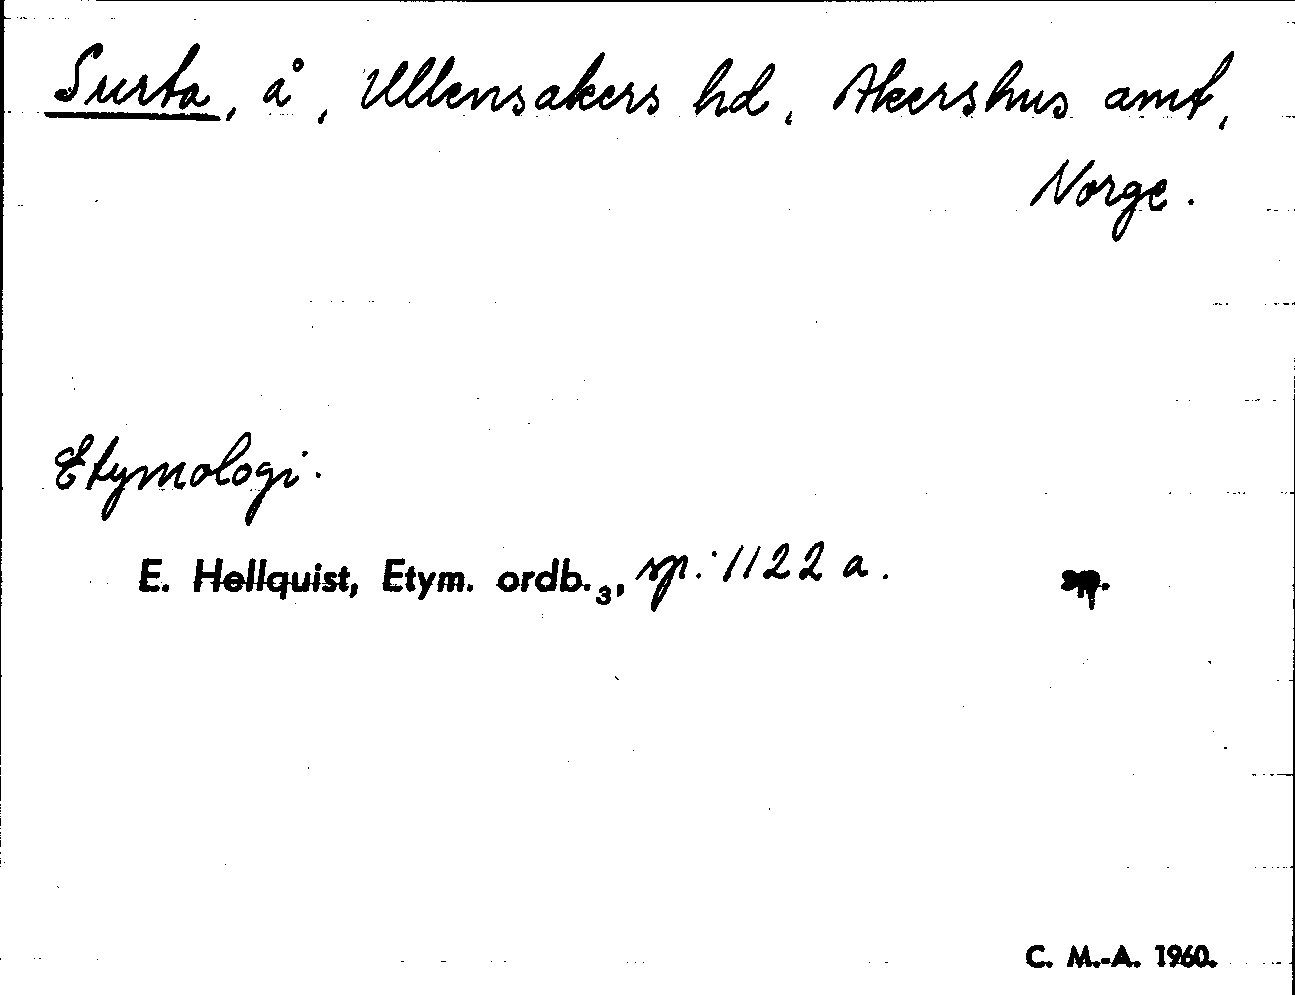 Surta, å, Ullensakers hd, Akershus amt,
Norge.
Etymologi.
E. Hellquist, Etym. ordb.3, sp. 1122 a. sp.
C. M.-A. 1960.